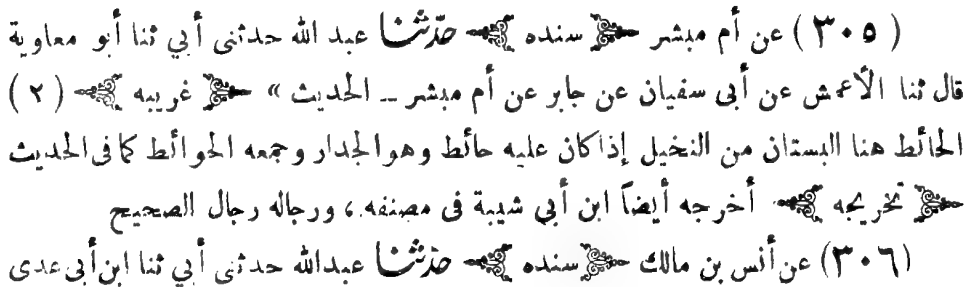 (٣٠٥) عن أم مبشر ﴿سنده﴾ حدثنا عبد الله حدثنى أبي ثنا أبو معاوية
قال ثنا الأعمش عن أبى سفيان عن جابر عن أم مبشر ــ الحديث » ﴿غريبه﴾ (٢)
الحائط هنا البستان من النخيل إذا كان عليه حائط وهو الجدار وجمعه الحوائط كما فى الحديث
﴿تخريجه﴾ أخرجه أيضاً ابن أبي شيبة فى مصنفه ، ورجاله رجال الصحيح
(٣٠٦) عن أنس بن مالك ﴿سنده﴾ حدثنا عبد الله حدثنى أبي ثنا ابن أبى عدى